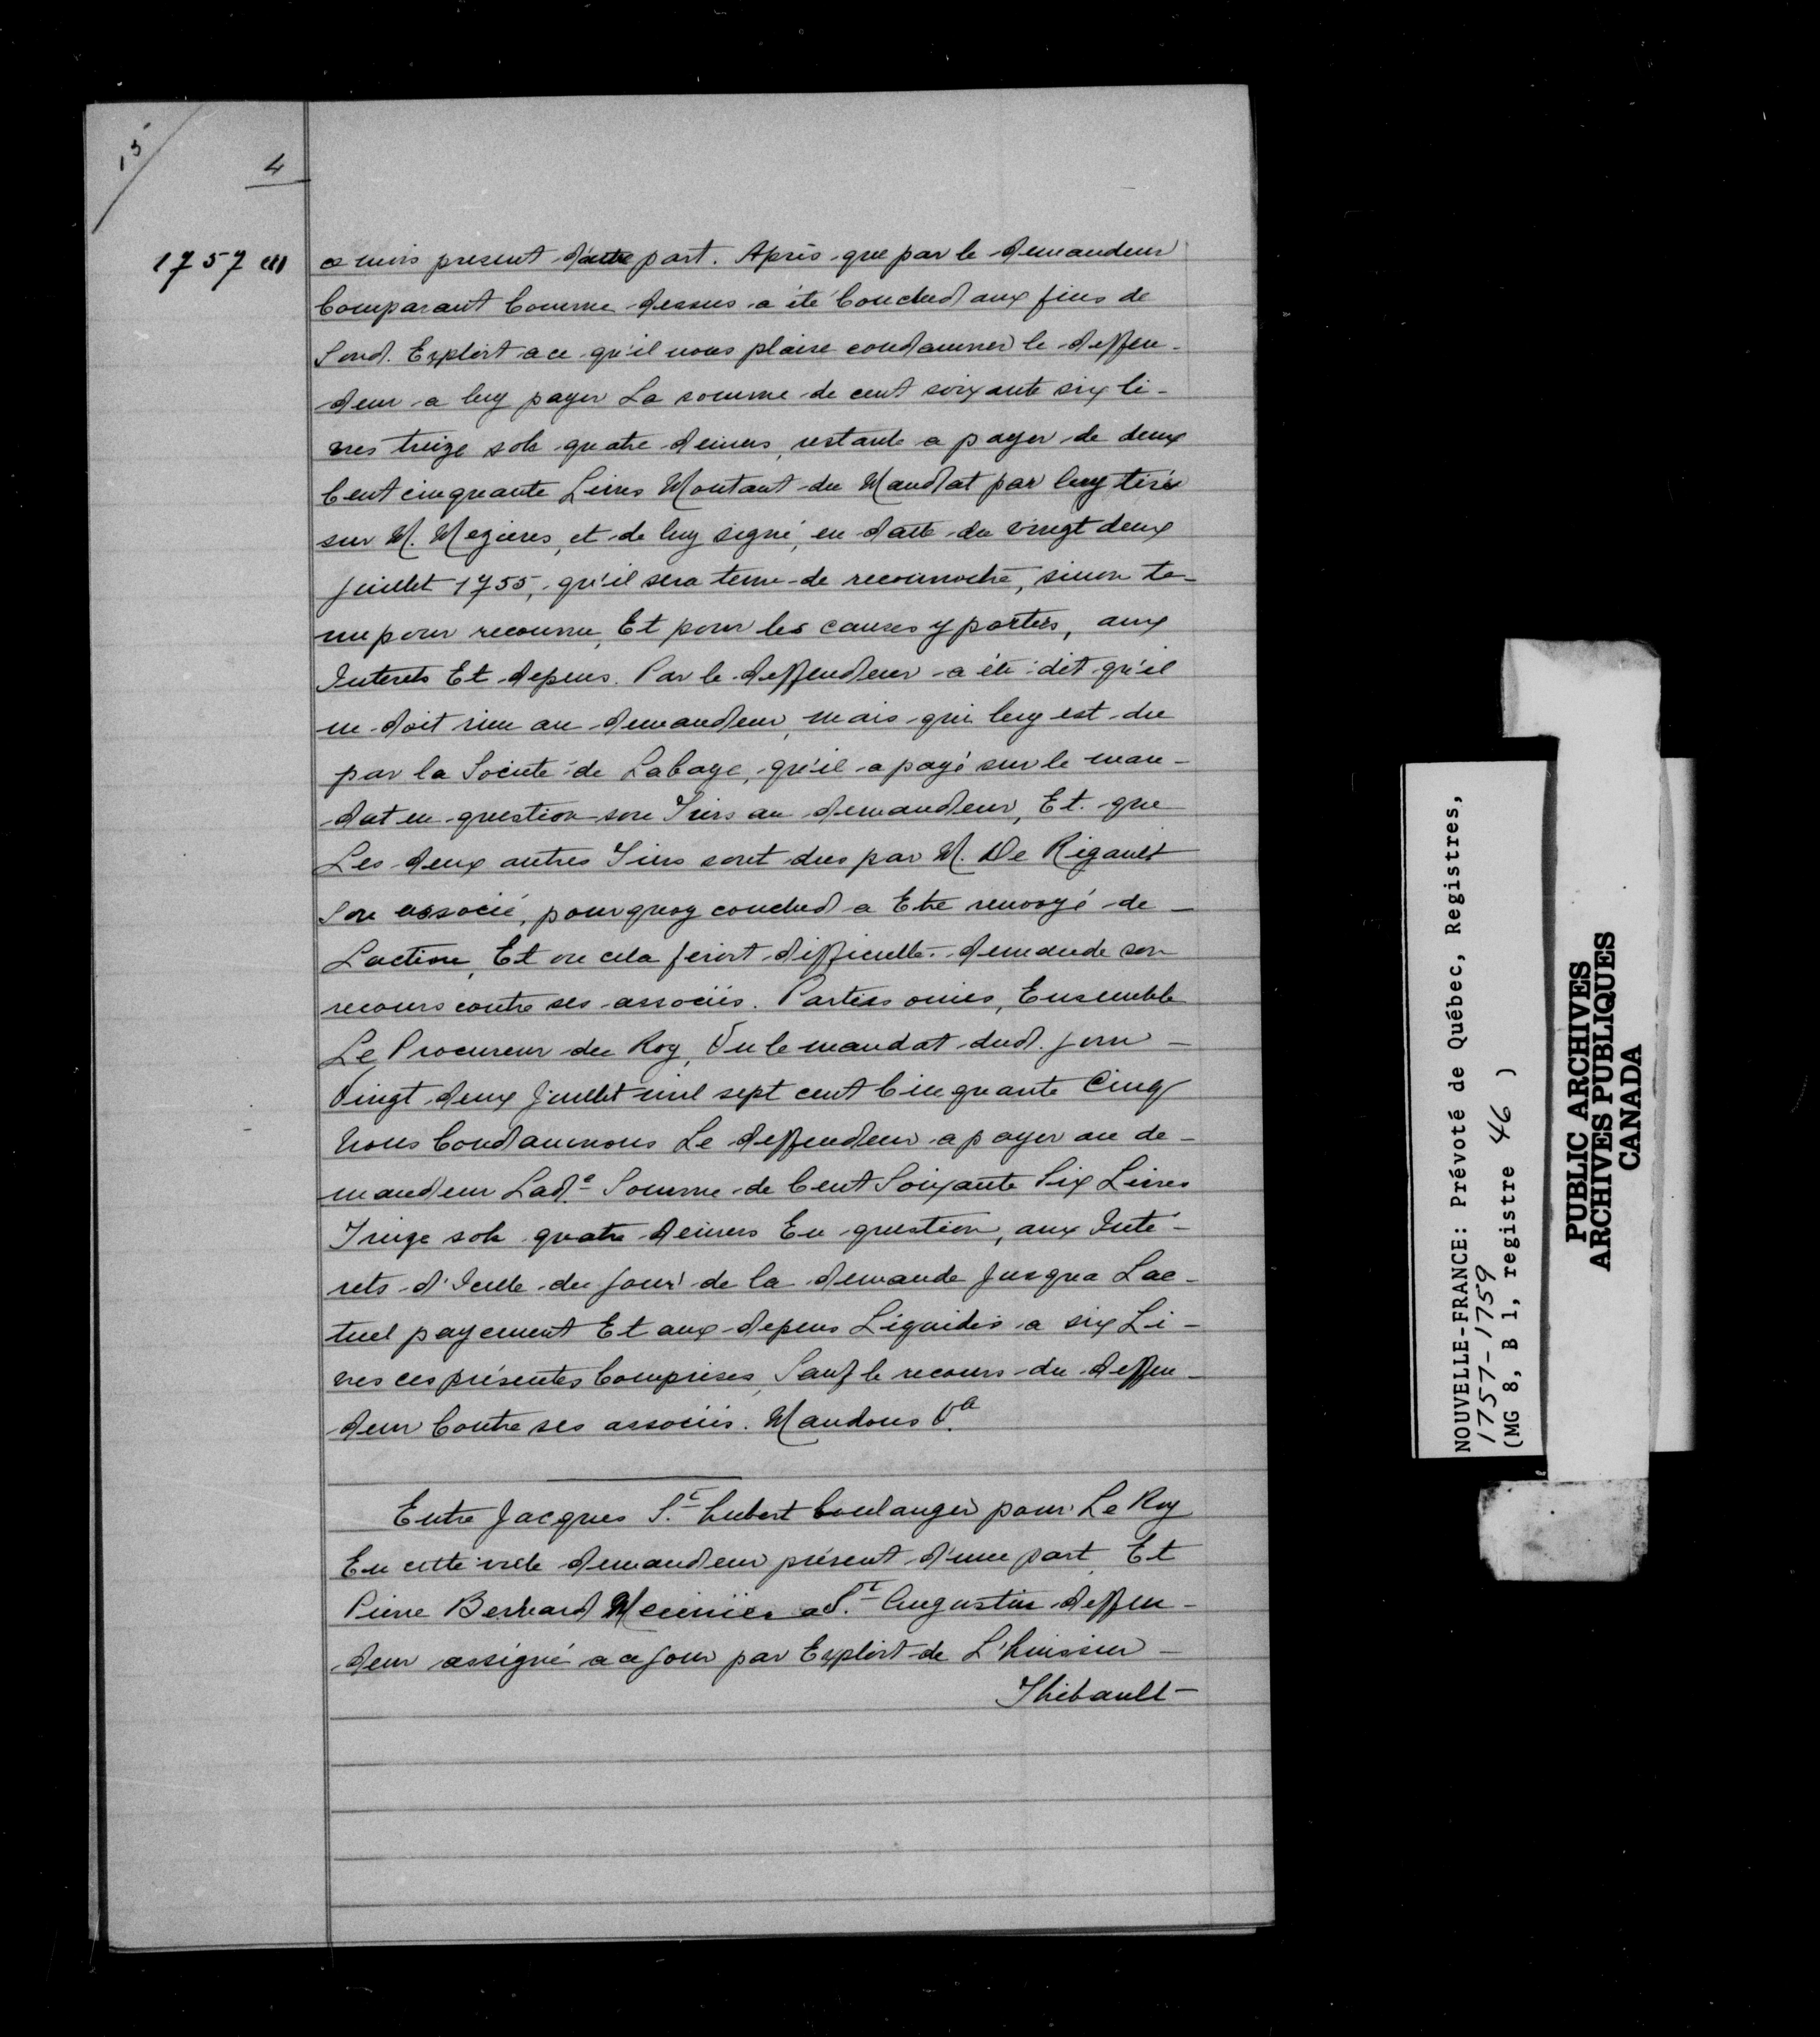 15
4
1757 (1)
ce mois present d'autre part. Après que par le demandeur
Comparant Comme dessus a été Conclud aux fins de
Sond. Exploit a ce qu'il nous plaise condamner le deffen-
deur a luy payer La somme de cent soixante six li-
vres treize sols quatre deniers, restante a payer de deux
Cent cinquante Livres Montant du Mandat par luy tiré
sur M. Mezieres, et de luy signé, en datte du vingt deux
Juillet 1755, qu'il sera tenu de reconnoitre, sinon te-
nu pour reconnu, Et pour les causes y portées, aux
Interets Et depens. Par le deffendeur a été dit qu'il
ne doit rien au demandeur, mais qui luy est du
par la Societé de Labaye, qu'il a payé sur le man-
dat en question son Tiers au demandeur, Et que
Les deux autres Tiers sont dus par M. De Rigault
Son associé, pourquoy conclud a Etre renvoyé de
Laction, Et ou cela feroit difficulté demande son
recours contre ses associés. Parties ouies, Ensemble
Le Procureur du Roy, Vu le mandat dud. jour
Vingt deux Juillet mil sept cent Cinquante Cinq
Nous Condamnons Le deffendeur a payer au de-
mandeur Lad.e Somme de Cent Soixante Six Livres
Treize sols quatre deniers En question, aux Inté-
rets d'Icelle du jour de la demande jusqua Lac-
tuel payement Et aux depens Liquidés a six Li-
vres ces présentes Comprises, Sauf le recours du deffen-
deur Contre ses associés. Mandons &a
Entre Jacques S.t hubert boulanger pour Le Roy
En cette ville demandeur présent d'une part, Et
Pierre Berhard Meunier a S.t Augustin deffen-
deur assigné a ce jour par Exploit de L'huissier
Thibault
NOUVELLE-FRANCE: Prévoté de Québec, Registres,
1757-1759
(MG 8, B 1, registre 46 )
PUBLIC ARCHIVES
ARCHIVES PUBLIQUES
CANADA